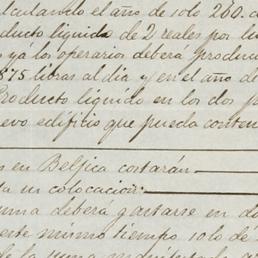 lculando el año de solo 280. d
ducto líquido de 2 reales por li
yá los operarios deberá produc
875 libras al día y en el año de
Producto líquido en los dos p
evo edificio que pueda conten
s en Belgica costarán
da su colocacion:
uma deberá gastarse en do
este mismo tiempo solo dé
de la suma